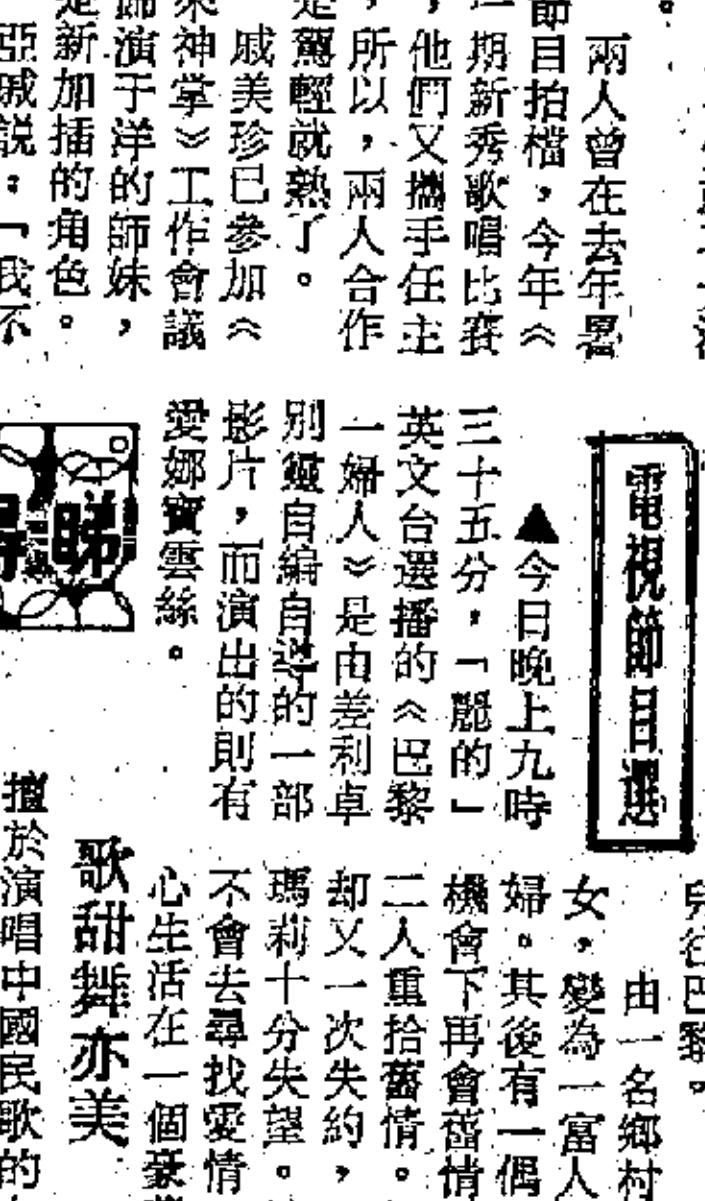 兩人曾在去年暑
節目拍檔，今年《
期新秀歌唱比賽
，他們又攜手任主
，所以，兩人合作
是駕輕就熟了。
戚美珍已參加《
來神掌》工作會議
飾演于洋的師妹，
是新加插的角色。
亞戚說：「我不
電視節目選
▲今日晚上九時
三十五分，「麗的」
英文台選播的《巴黎
一婦人》是由差利卓
別靈自編自導的一部
影片，而演出的則有
愛娜寶雲絲。
睇
兒往巴黎。
由一名鄉村
女，變為一富人
婦。其後有一偶
機會下再會舊情
二人重拾舊情。
却又一次失約，
瑪莉十分失望。
不會去尋找愛情
心生活在一個豪
歌甜舞亦美
擅於演唱中國民歌的